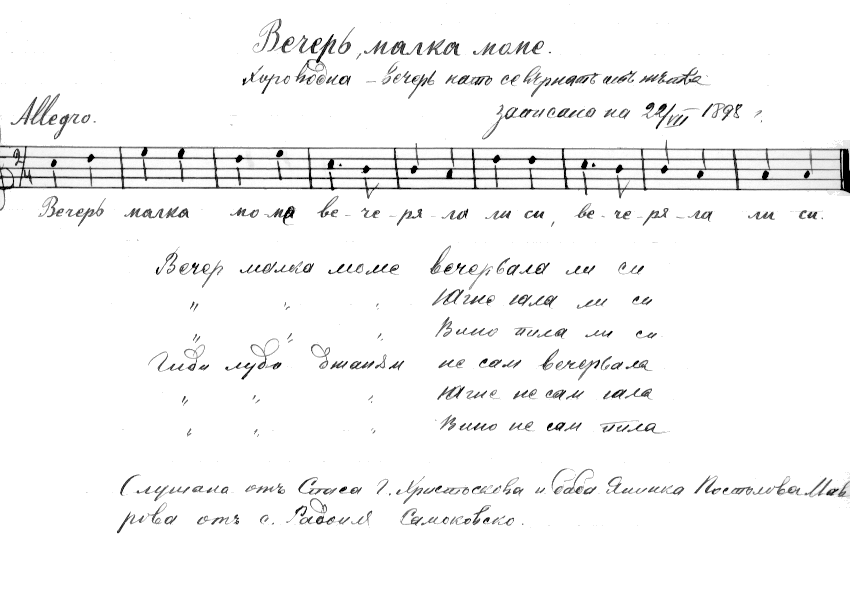 Вечерь, малка моме.
Хороводна – вечерь като се върнатъ отъ жътва
записана на 22/VII 1898 г.
Allegro.
2/4
Вечерь малка моме ве-че-ря-ла ли си, ве-че-ря-ла ли си.
Вечер малка моме вечервала ли си
" " " Югне юла ли си
" " " Вино пила ли си
Гиди лудо джанъм не сам вечервала
" " " Югне не сам юла
" " " Вино не сам пила
Слушана отъ Стаса Г. Христоскова и баба Янинка Постолова Мав
рова отъ с. Радоил Самоковско.